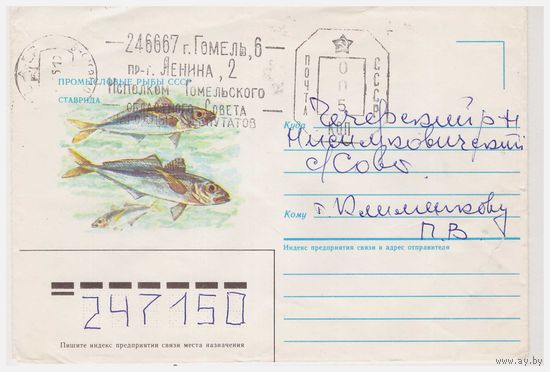 246667 г. Гомель, 6
пр-т. Ленина, 2
Исполком Гомельского
областного Совета
депутатов
ПРОМЫСЛОВЫЕ РЫБЫ СССР
СТАВРИДА
ПОЧТА
СССР
005
коп
Куда Чечерский р-н
Нисимковичский
с/Совет
Кому т. Клименкову
П. В.
Индекс предприятия связи и адрес отправителя
247150
Пишите индекс предприятия связи места назначения
www.ay.by